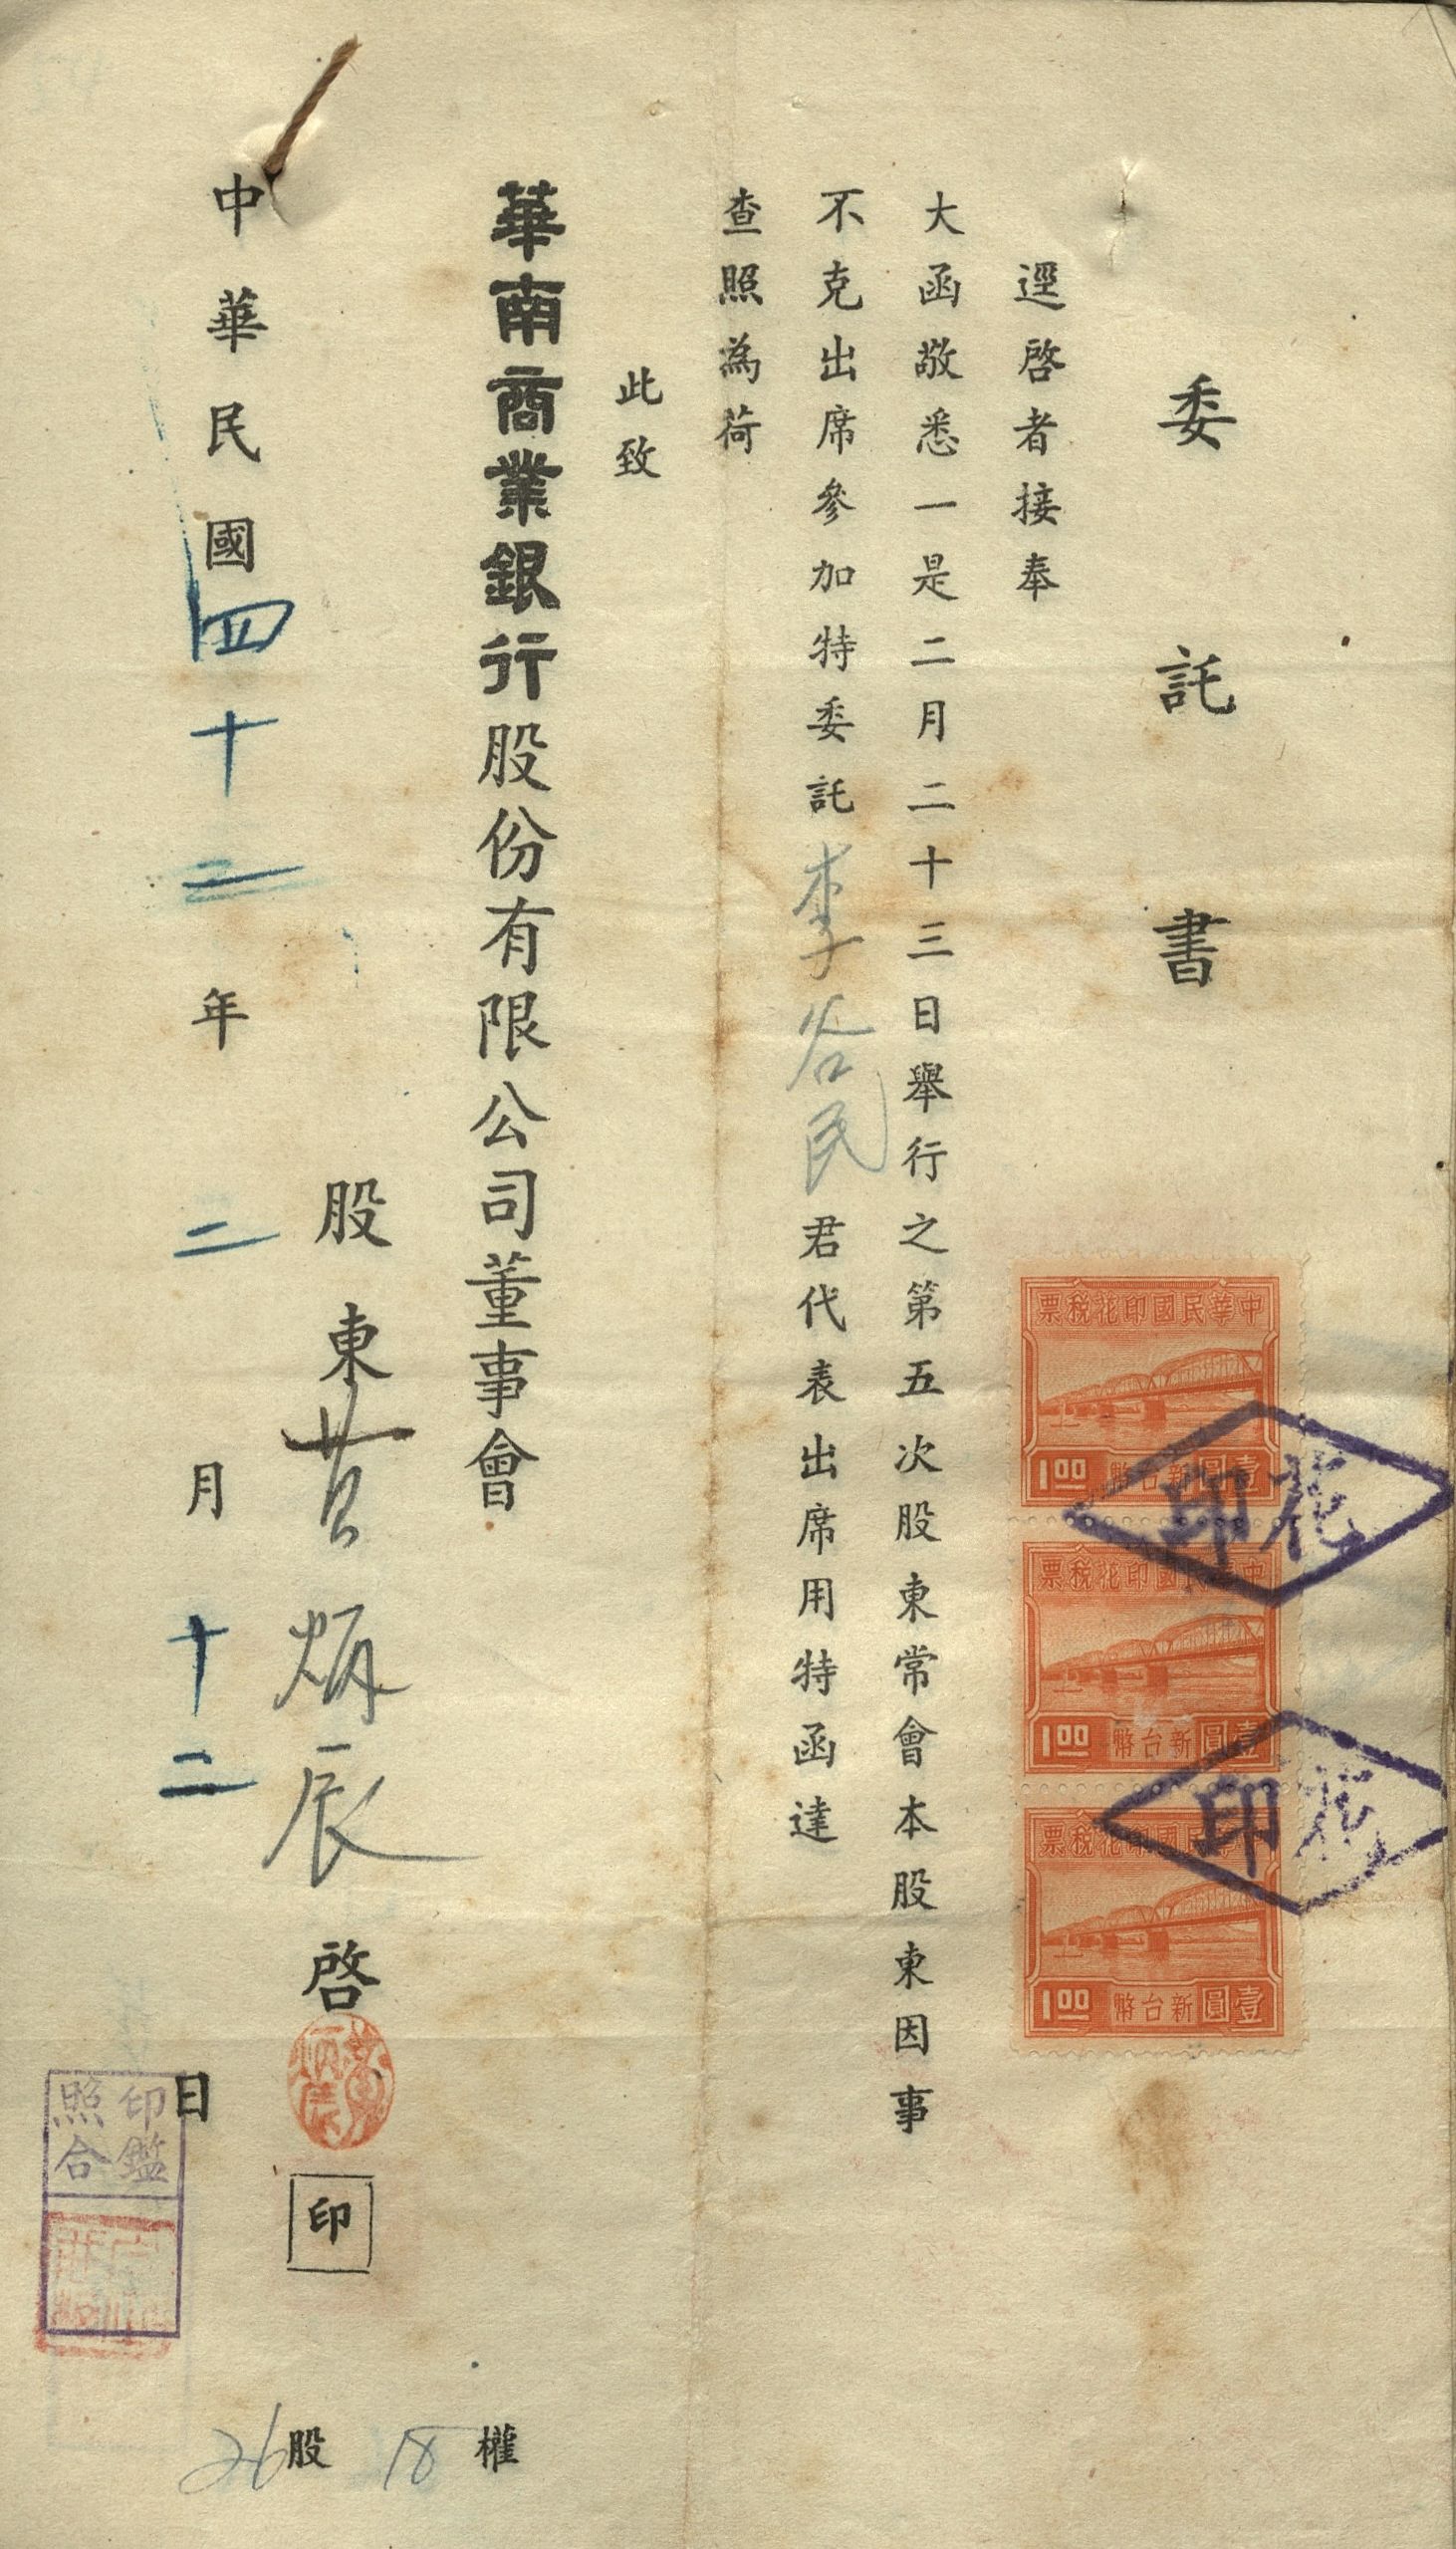 委託書
逕啓者接奉
大函敬悉一是二月二十三日舉行之第五次股東常會本股東因事
不克出席參加特委託李谷民君代表出席用特函達
查照為荷
此致
華南商業銀行股份有限公司董事會
股東黃炳辰啓
印
中華民國四十二年二月十二日
26股 18權
票稅花印國民華中
1.00 幣台新圓壹
票稅花印國民華中
1.00 幣台新圓壹
票稅花印國民華中
1.00 幣台新圓壹
印花
印花
印鑑
照合